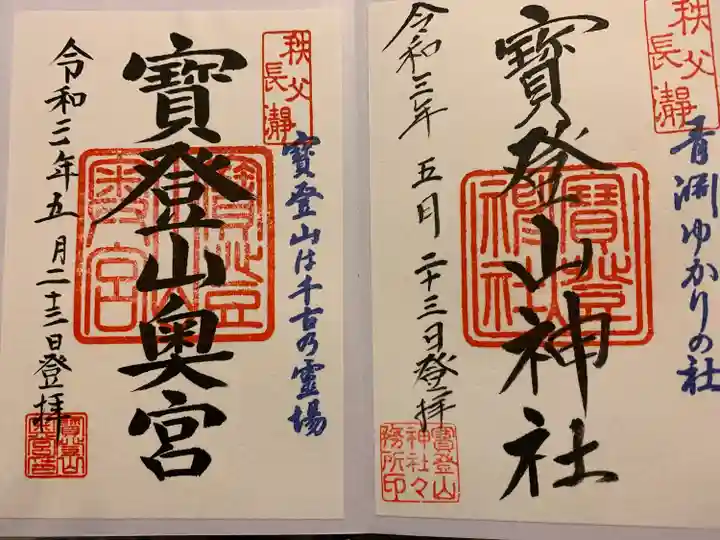 秩父
長瀞
青渕ゆかりの社
寳登山神社
寳登山
神社
令和三年五月二十三日登拝
寳登山
神社々
務所印
秩父
長瀞
寳登山は千古乃霊場
寳登山奥宮
寳登山
奥宮
令和三年五月二十三日登拝